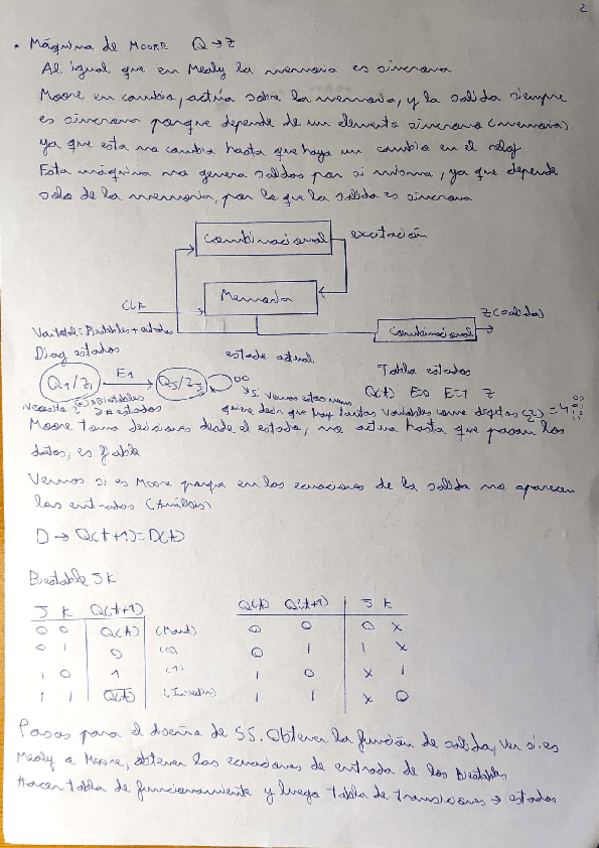 2
• Máquina de MOORE Q→Z
Al igual que en Mealy la memoria es síncrona
Moore en cambio, actúa sobre la memoria, y la salida siempre
es síncrona porque depende de un elemento síncrono (memoria)
ya que esta no cambia hasta que haya un cambio en el reloj
Esta máquina no genera salidas por si misma, ya que depende
solo de la memoria, por lo que la salida es síncrona
Combinacional
excitación
Memoria
CLK
Combinacional
Z (salida)
estado actual
Diag estados
Q1/Z1 E1 Q3/Z3 00
Tabla estados
Q(t) E=0 E=1 Z
quiere decir que hay tantas variables como dígitos
Moore toma decisiones desde el estado, no actua hasta que pasan los
datos, es fiable
Vemos si es Moore porque en las ecuaciones de la salida no aparecen
las entradas (Análisis)
D → Q(t+1)=D(t)
Biestable JK
J K Q(t+1)
0 0 Q(t) (Mant)
0 1 0 (0)
1 0 1 (1)
1 1 Q̅(̅t̅)̅
Q(t) Q(t+1) J K
0 0 0 X
0 1 1 X
1 0 X 1
1 1 X 0
Pasos para el diseño de SS. Obtener la función de salida, ver si es
Mealy o Moore, obtener las ecuaciones de entrada de los Biestables
Hacer tabla de funcionamiento y luego tabla de transiciones → estados